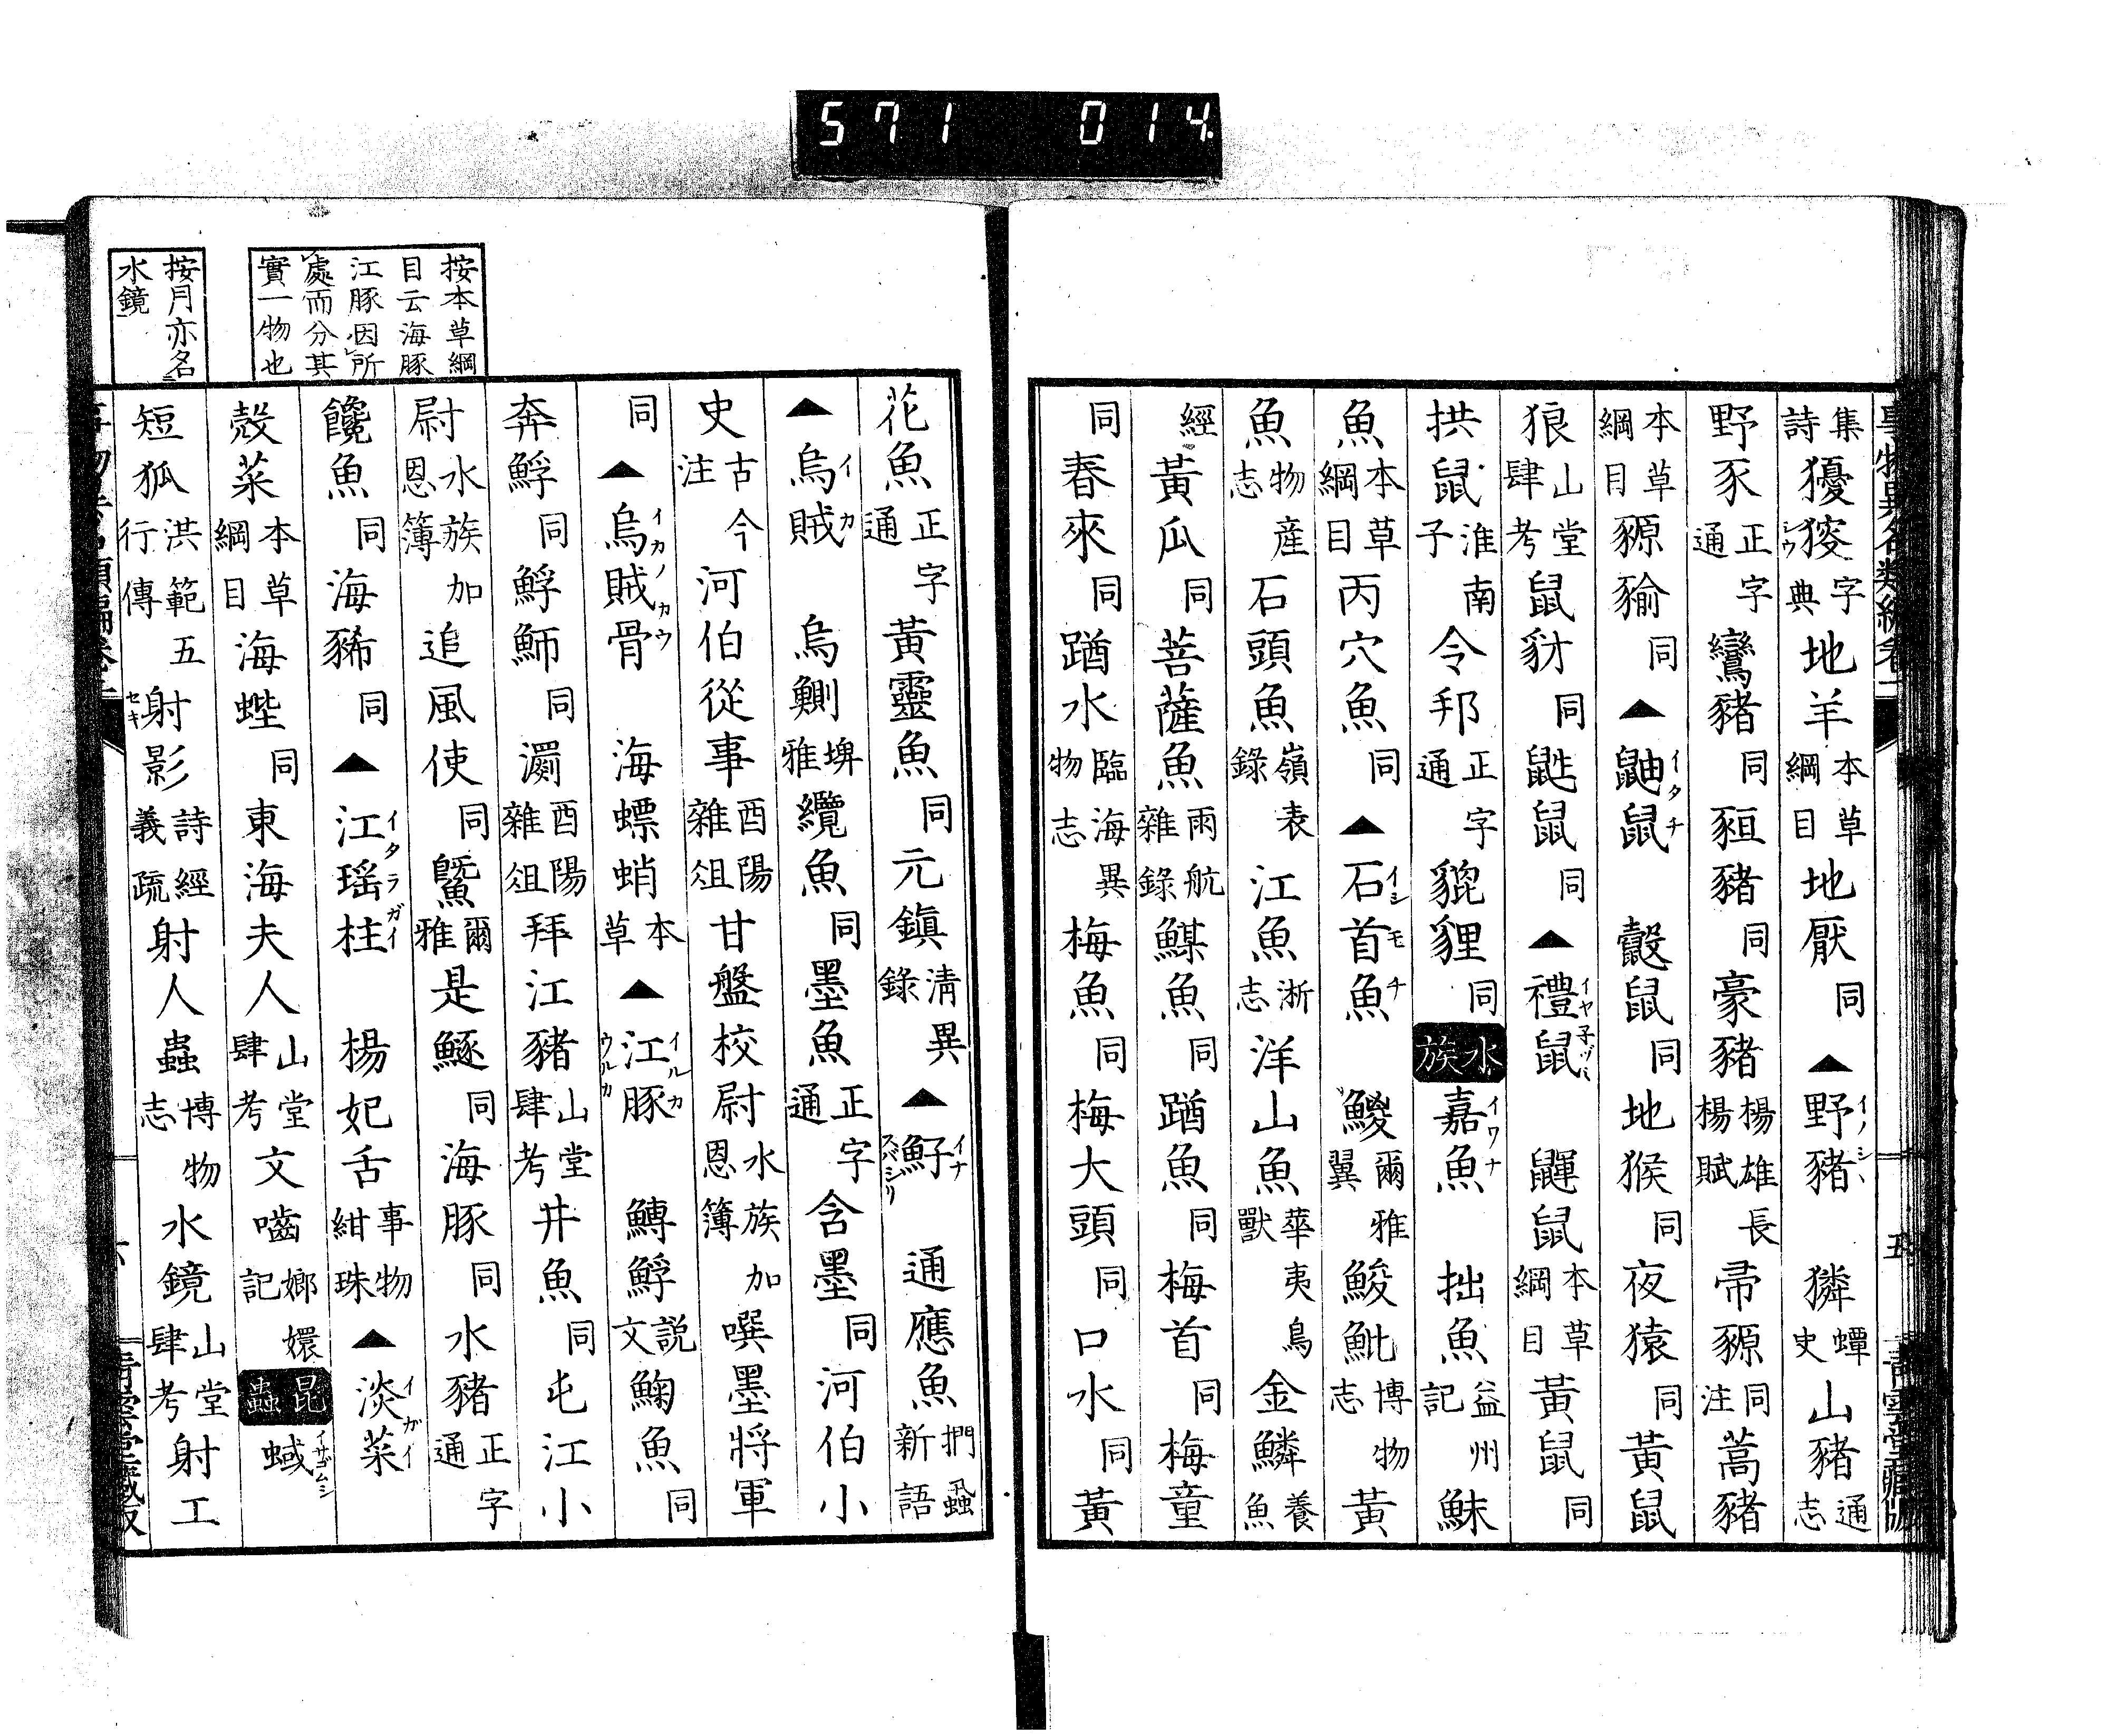 571 014
事物異名類編卷一
五
青雲堂藏版
集詩獶獀シウ字典地羊本草綱目地厭同▲野豬イノシヽ獜蟫史山豬通志
野豕正字通鸞豬同豲豬同豪豬楊雄長楊賦帚豲同注蒿豬
本草綱目豲㺄同▲鼬鼠イタチ鼷鼠同地猴同夜猿同黃鼠
狼山堂肆考鼠豺同鼪鼠同▲禮鼠イヤ子ヅミ鼲鼠本草綱目黃鼠同
拱鼠淮南子令邦正字通貔貍同水族嘉魚イワナ拙魚益州記鮇
魚本草綱目丙穴魚同▲石首魚イシモチ鯼爾雅翼鮻魮博物志黃
魚物産志石頭魚嶺表錄江魚浙志洋山魚華夷鳥獸金鱗養魚
經黃瓜同菩薩魚雨航雜錄鰇魚同蹋魚同梅首同梅童
同春來同蹋水臨海異物志梅魚同梅大頭同口水同黃
花魚正字通黃靈魚同元鎮清異錄▲鮏イナスバシリ通應魚捫蝨新語
▲烏賊イカ烏鰂埤雅纜魚同墨魚正字通含墨同河伯小
史古今注河伯從事酉陽雜俎甘盤校尉水族加恩簿噀墨將軍
同▲烏賊骨イカノカウ海螵蛸本草▲江豚イルカウルカ鱄䱐説文鞠魚同
奔䱐同䱐魳同㶉酉陽雜俎拜江豬山堂肆考井魚同屯江小
尉水族加恩簿追風使同鱀爾雅是鱁同海豚同水豬正字通
饞魚同海豨同▲江瑤柱イタラガイ楊妃舌事物紺珠▲淡菜イガイ
殼菜本草綱目海蜌同東海夫人山堂肆考文嚙嫏嬛記昆蟲蜮イサゴムシ
短狐洪範五行傳射影セキ詩經義疏射人蟲博物志水鏡山堂肆考射工
按本草綱
目云海豚
江豚因所
處而分其
實一物也
按月亦名
水鏡